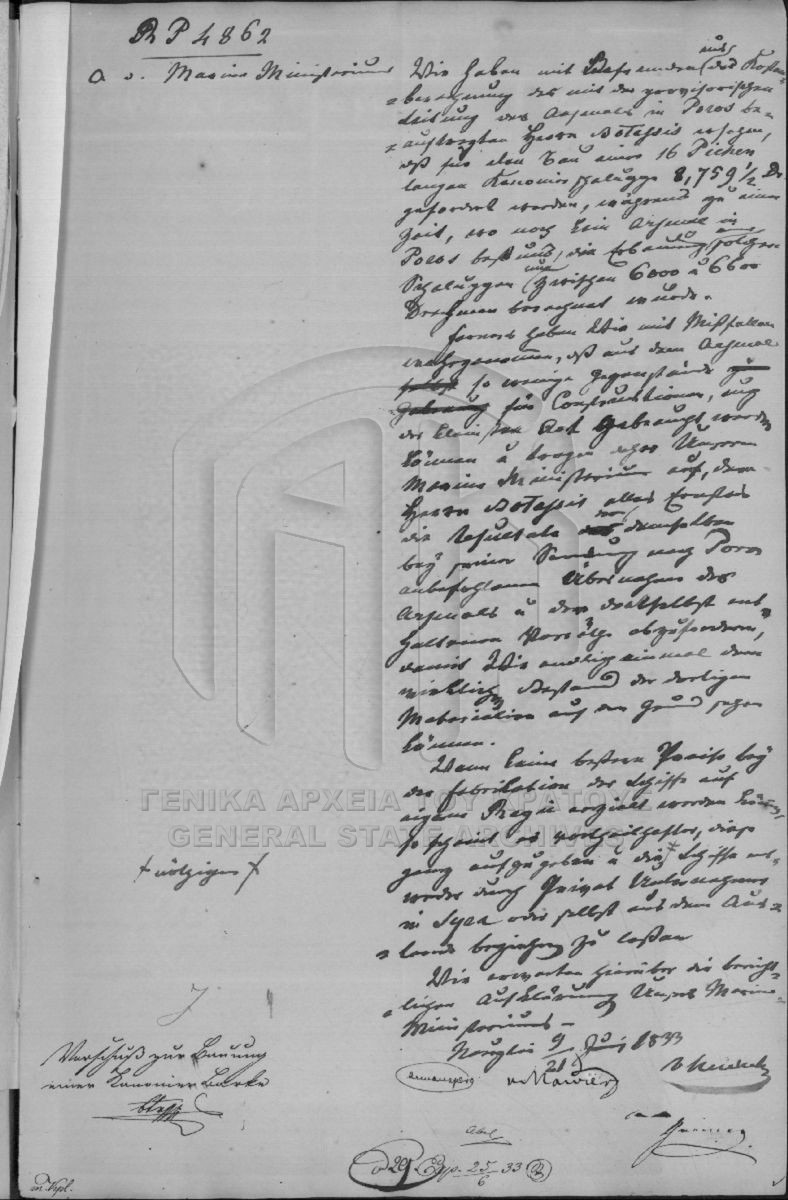 R P 4862
a. d. Marine Ministerium
Wir haben mit Befremden aus der Kosten-
berechnung des mit der provisorischen
Leitung des Arsenals in Poros be-
auftragten Herrn Botassis ersehen,
daß für den Bau einer 16 Pichen
langen Kanonier schaluppe 8,759 1/2 Dr
gefordert werden, während zu einer
Zeit, wo noch kein Arsenal in
Poros bestund, die Erbauung solcher
Schaluppen nur zwischen 6000 u 6600
Drachmen berechnet wurde.
Ferners haben Wir mit Mißfallen
wahrgenommen, daß aus dem Arsenal
selbst so wenige Gegenstände zu
für Construktionen, auch
der kleinsten Art gebraucht werden
können u tragen daher Unserm
Marine Ministerium auf, dem
Herrn Botassis alles Ernstes
die Resultate der demselben
bey seiner Sendung nach Poros
anbefohlenen Übernahme des
Arsenals u der daselbst ent-
haltenen Vorräthe abzufordern,
damit Wir endlich einmal dem
wirklichen Bestand der dortigen
Materialien auf den Grund sehen
können.
Wenn keine bessern Preise bey
der Fabrikation der Schiffe auf
eigene Regie erzielt werden können,
so scheint es vortheilhafter, diese
ganz aufzugeben u die Schiffe ent-
weder durch Privat Unternehmer
in Syra oder selbst aus dem Aus-
lande beziehen zu lassen
+ nöthigen +
Wir erwarten hierüber die bericht-
liche Aufklärung Unseres Marine
Ministeriums –
Nauplia 9/21 Juni 1833
Vorschuß zur Bauung
einer Kanonier Barke
Armansperg
v Maurer
v Heideck
Exp. 25/6 33
ΓΕΝΙΚΑ ΑΡΧΕΙΑ ΤΟΥ ΚΡΑΤΟΥΣ
GENERAL STATE ARCHIVES